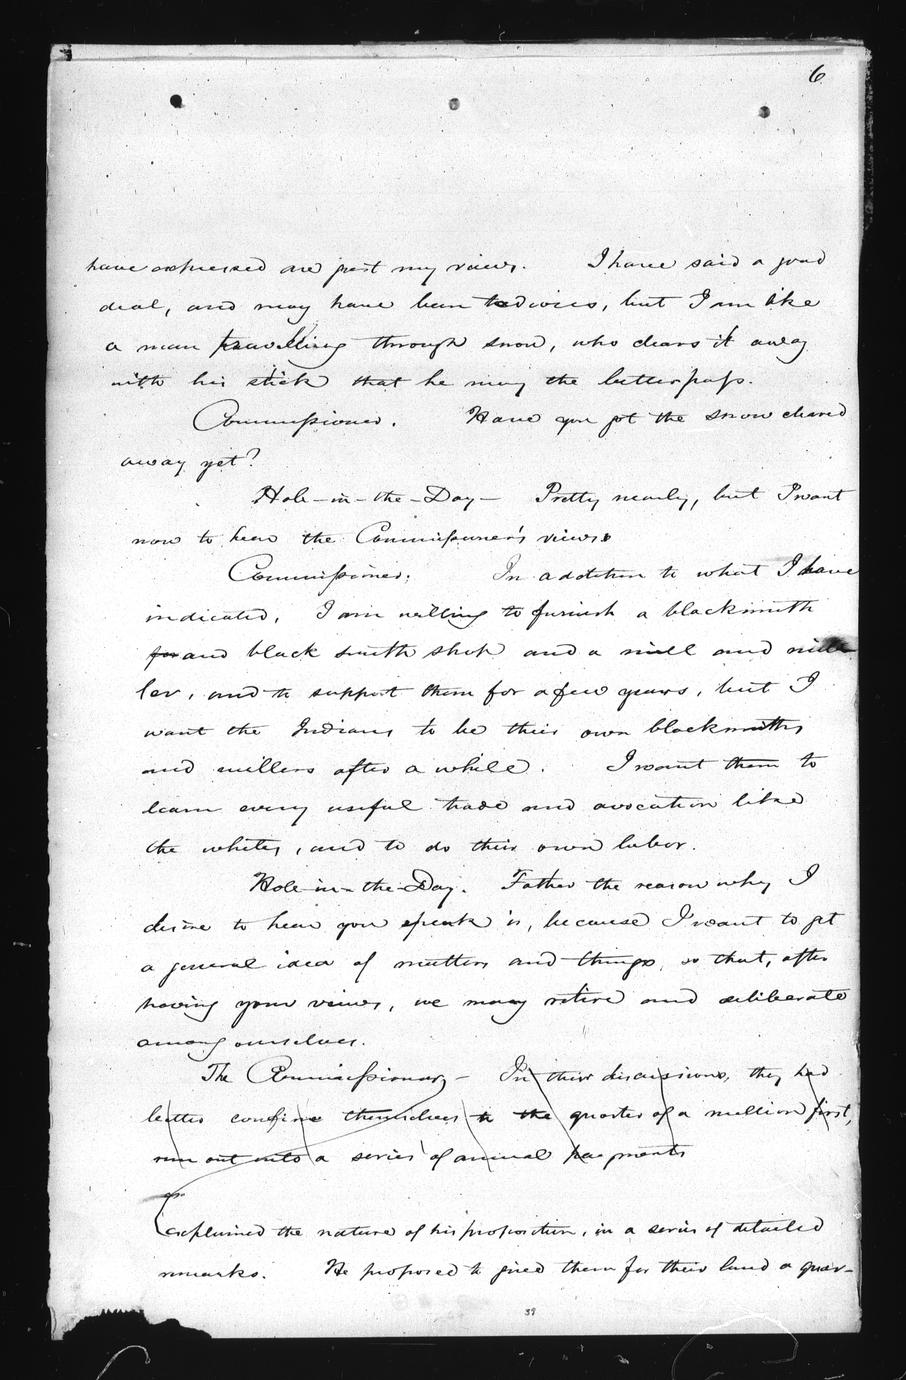 6
have expressed are just my views. I have said a good
deal, and may have been tedious, but I am like
a man travelling through snow, who clears it away
with his stick that he may the better pass.
Commissioner. Have you got the snow cleared
away yet?
Hole-in-the-Day- Pretty nearly, but I want
now to hear the Commissioner's views.
Commissioner. In addition to what I have
indicated, I am willing to furnish a blacksmith
for and black smith shop and a mill and mil
ler, and to support them for a few years, but I
want the Indians to be their own blacksmiths
and millers after a while. I want them to
learn every useful trade and avocation like
the whites, and to do their own labor.
Hole-in-the-Day. Father the reason why I
desire to hear you speak is, because I want to get
a general idea of matters and things, so that, after
having your views, we may retire and deliberate
among ourselves.
The Commissioner - In their discussions, they had
better confine themselves to the quarter of a million first,
run out into a series of annual payments
explained the nature of his proposition, in a series of detailed
remarks. He proposed to give them for their land a quar-
39